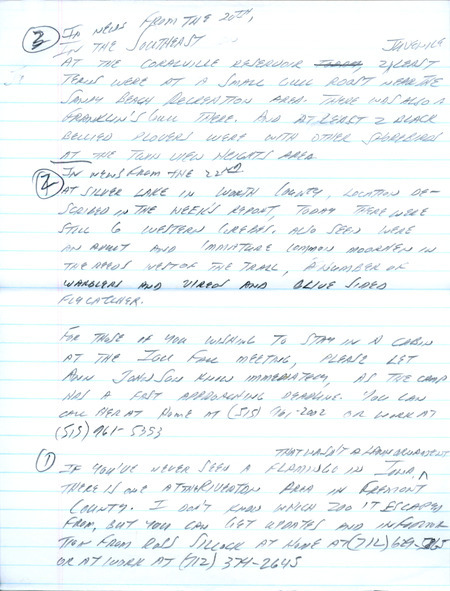 ③ IN NEWS FROM THE 20TH,
IN THE SOUTHEAST JUVENILE
AT THE CORALVILLE RESERVOIR 2 LEAST
TERNS WERE AT A SMALL GULL ROOST NEAR THE
SANDY BEACH RECREATION AREA. THERE WAS ALSO A
FRANKLIN'S GULL THERE. AND AT LEAST 2 BLACK
BELLIED PLOVERS WERE WITH OTHER SHOREBIRDS
AT THE TOWN VIEW HEIGHTS AREA
② IN NEWS FROM THE 22ND
AT SILVER LAKE IN WORTH COUNTY, LOCATION DE-
SCRIBED IN THE WEEK'S REPORT, TODAY THERE WERE
STILL 6 WESTERN GREBES. ALSO SEEN WERE
AN ADULT AND IMMATURE COMMON MOORHEN IN
THE REEDS WEST OF THE TRAIL, A NUMBER OF
WARBLERS AND VIREOS AND OLIVE SIDED
FLYCATCHER.
FOR THOSE OF YOU WISHING TO STAY IN A CABIN
AT THE IOU FALL MEETING, PLEASE LET
ANN JOHNSON KNOW IMMEDIATELY, AS THE CAMP
HAS A FAST APPROACHING DEADLINE. YOU CAN
CALL HER AT HOME AT (515) 961-2002 OR WORK AT
(515) 961-5353
THAT WASN'T A LAWN ORNAMENT
① IF YOU'VE NEVER SEEN A FLAMINGO IN IOWA, ^
THERE IS ONE AT THE RIVERTON AREA IN FREMONT
COUNTY. I DON'T KNOW WHICH ZOO IT ESCAPED
FROM, BUT YOU CAN GET UPDATES AND INFORMA
TION FROM ROSS SILCOCK AT HOME AT (712)
OR AT WORK AT (712) 374-2645